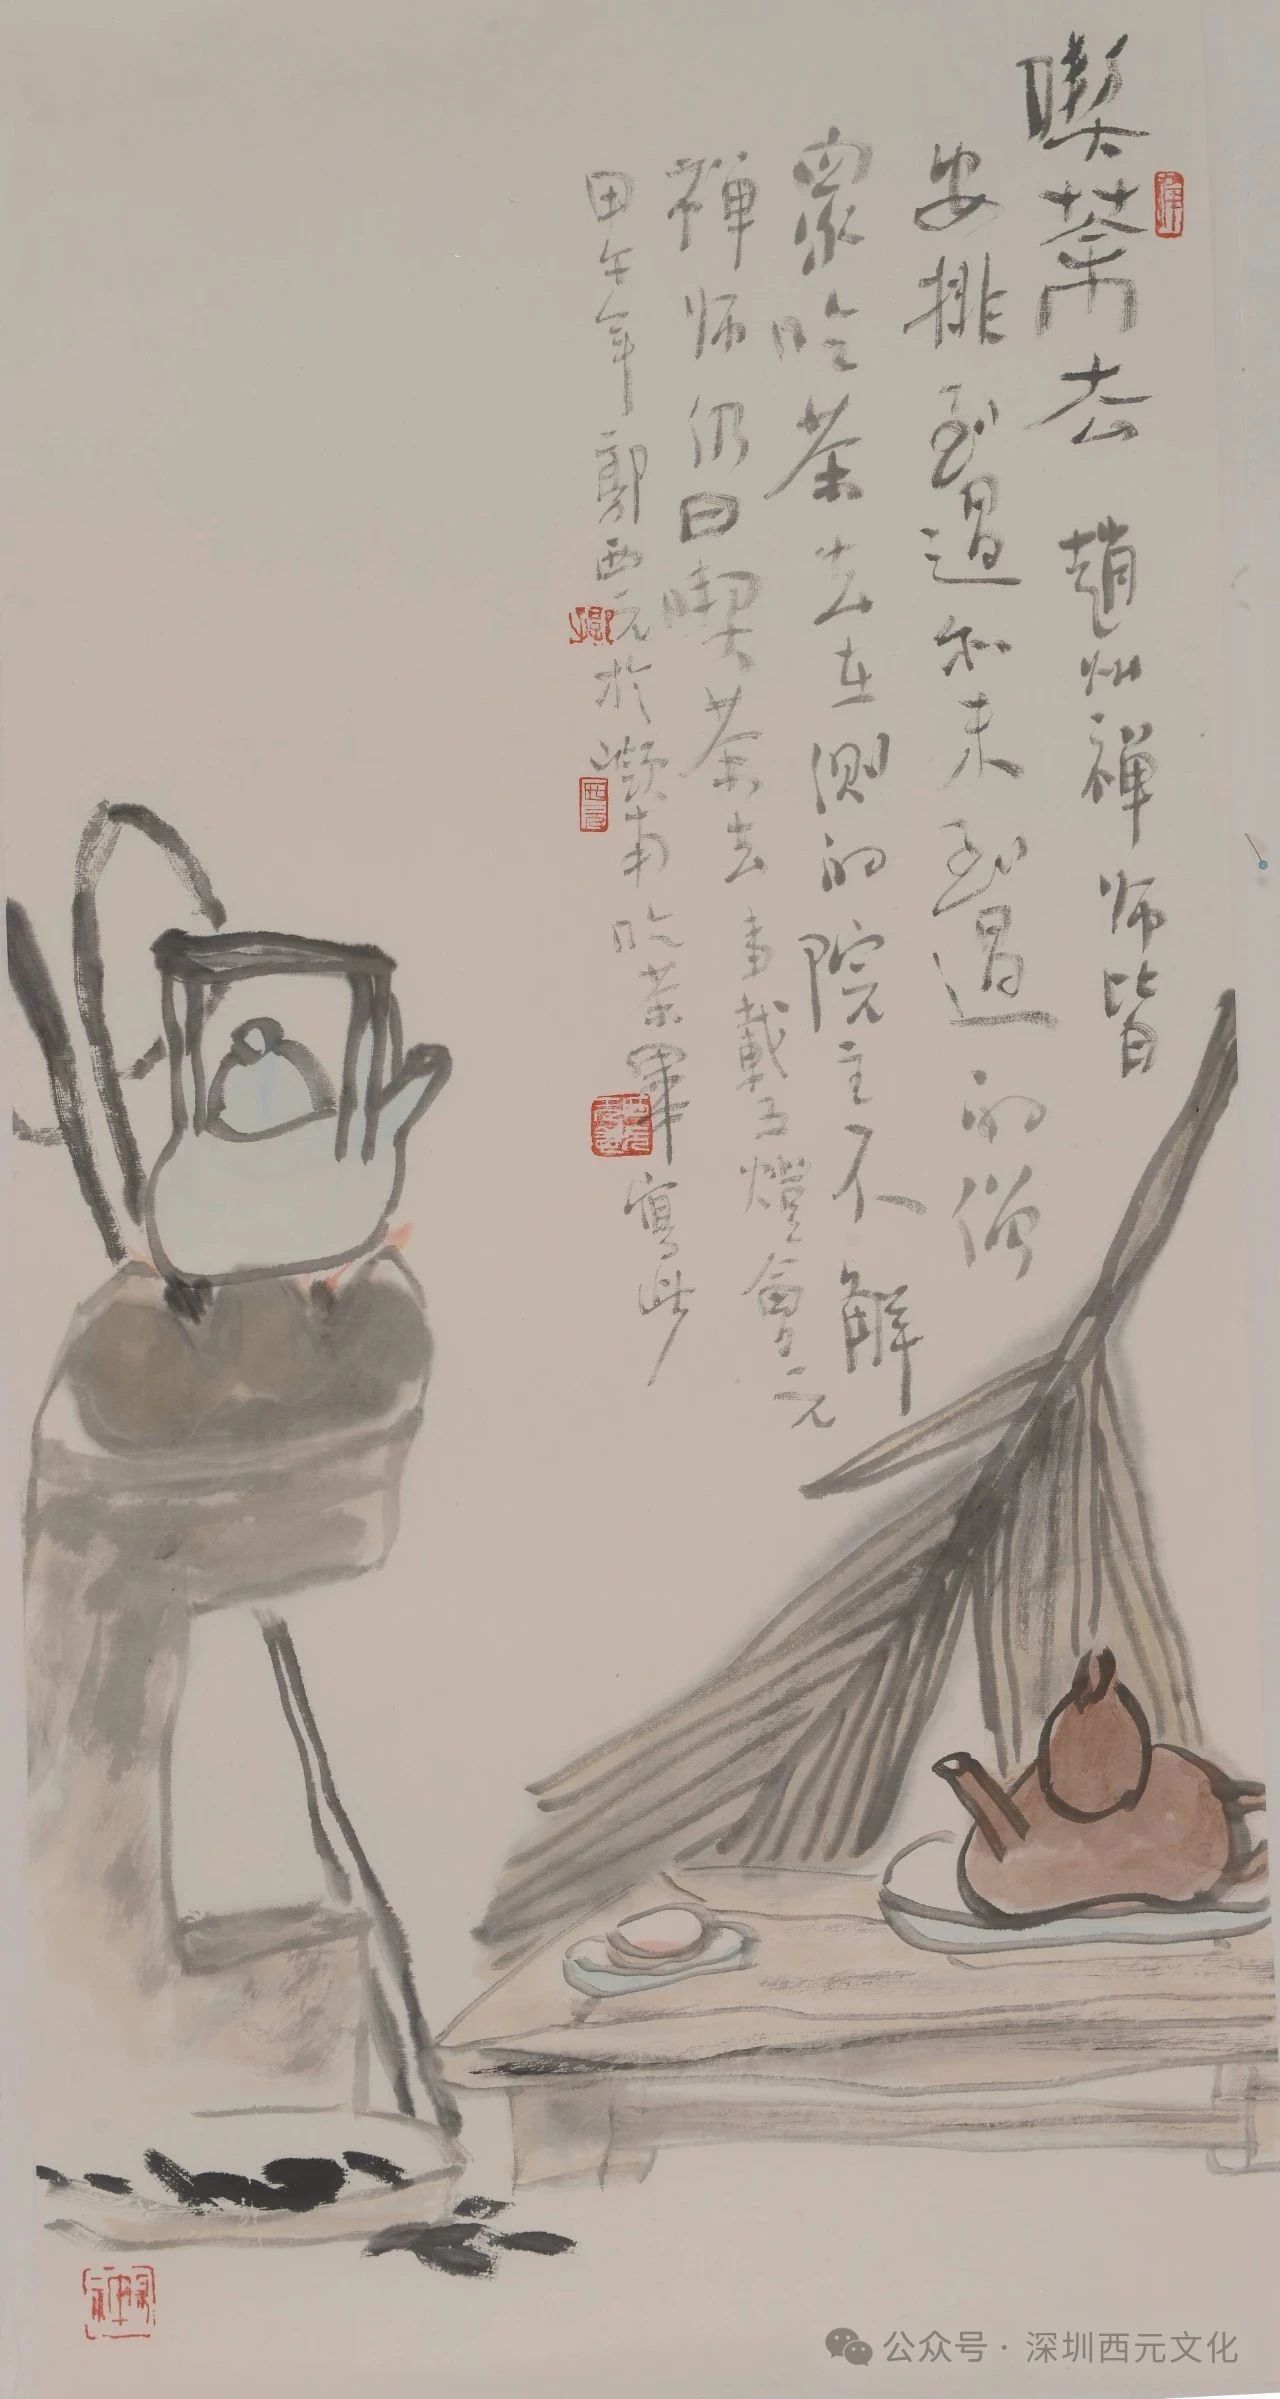 喫茶去 趙州禪师皆
安排到過和未到過的僧
衆吃茶去在側的院主不解
禪师仍曰喫茶去 事載五燈會元
甲午年郭西元於嶺南吃茶畢寫此
公众号·深圳西元文化